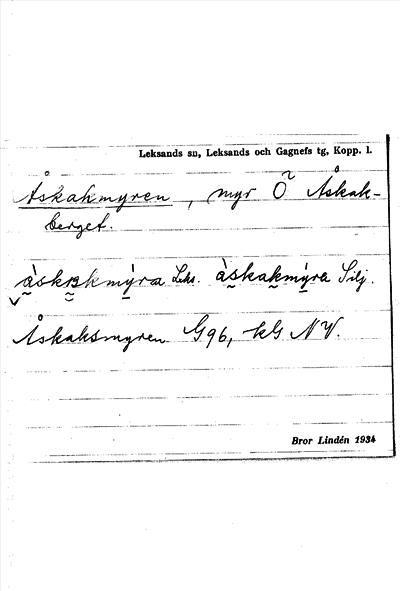 Leksands sn, Leksands och Gagnefs tg, Kopp. l.
Åskakmyren, myr Ö Åskak-
berget.
åskakmyra Leks. åskakmyra Silj.
Åskaksmyren G96, kG NV.
Bror Lindén 1934